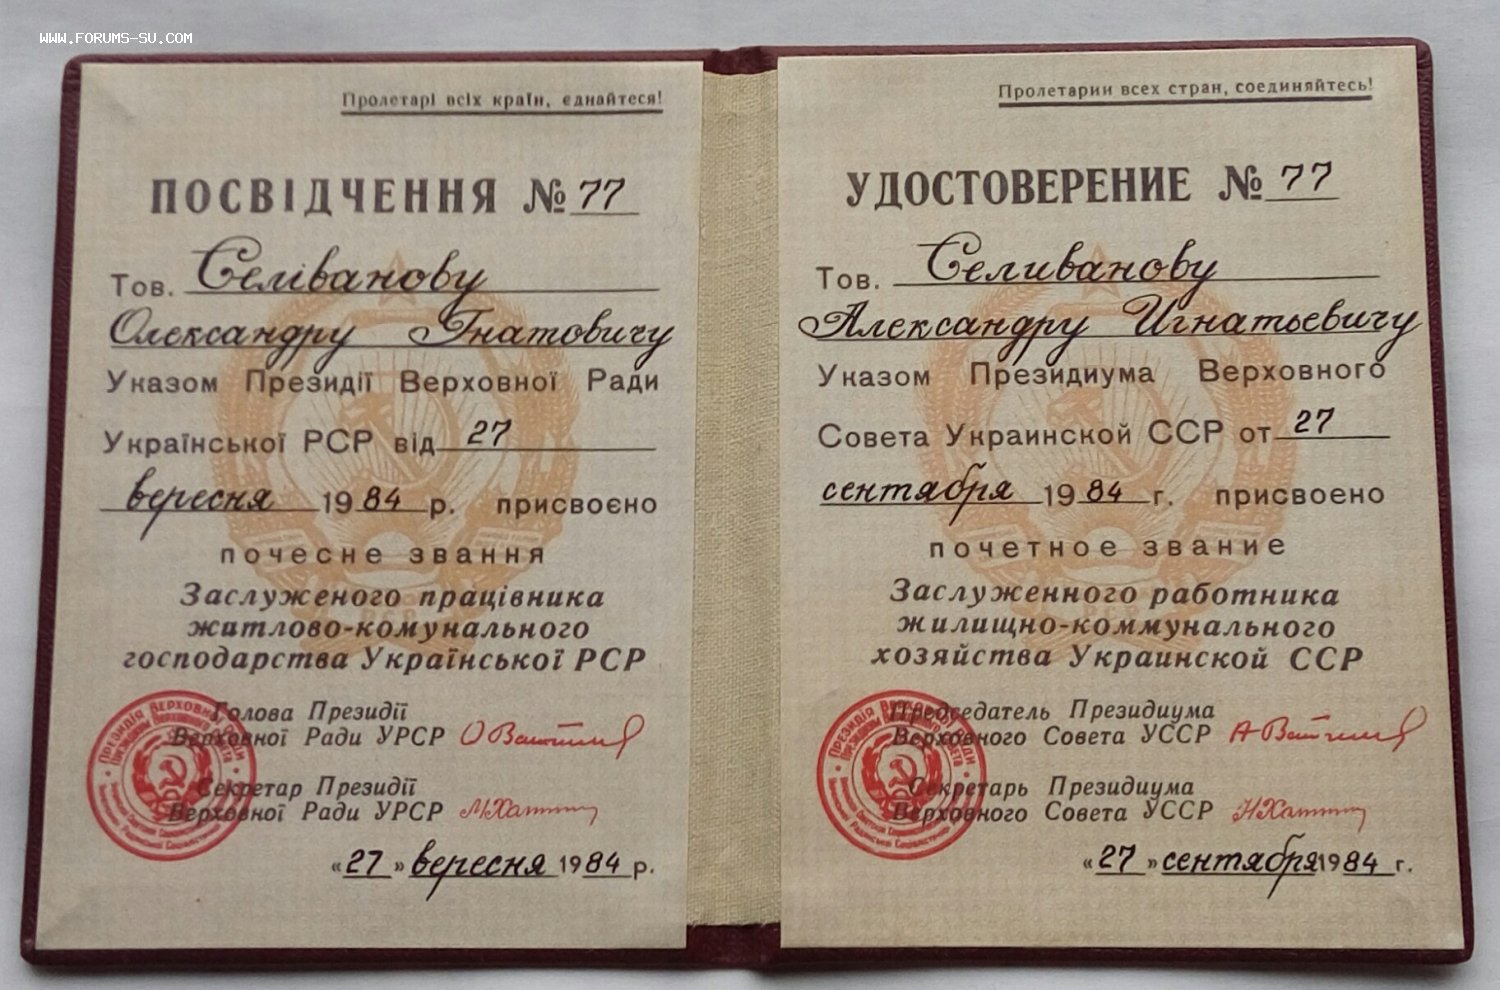 WWW.FORUMS-SU.COM
Пролетарі всіх країн, єднайтеся!
ПОСВІДЧЕННЯ № 77
Тов. Селіванову
Олександру Гнатовичу
Указом Президії Верховної Ради
Української РСР від 27
вересня 1984 р. присвоєно
почесне звання
Заслуженого працівника
житлово-комунального
господарства Української РСР
Голова Президії
Верховної Ради УРСР
Секретар Президії
Верховної Ради УРСР
«27» вересня 1984 р.
Пролетарии всех стран, соединяйтесь!
УДОСТОВЕРЕНИЕ № 77
Тов. Селиванову
Александру Игнатьевичу
Указом Президиума Верховного
Совета Украинской ССР от 27
сентября 1984 г. присвоено
почетное звание
Заслуженного работника
жилищно-коммунального
хозяйства Украинской ССР
Председатель Президиума
Верховного Совета УССР
Секретарь Президиума
Верховного Совета УССР
«27» сентября 1984 г.